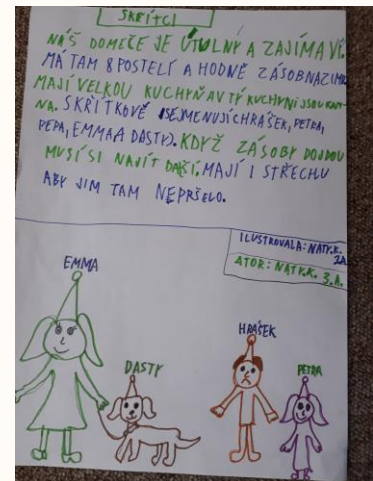 SKŘÍTCI
NÁŠ DOMEČE JE ÚTULNÝ A ZAJÍMAVÝ.
MÁ TAM 8 POSTELÍ A HODNĚ ZÁSOB NA ZIMU.
MAJÍ VELKOU KUCHYŇ A V TÝ KUCHYNI JSOU KAM-
NA. SKŘÍTKOVÉ SE JMENUJÍ (HRÁŠEK, PETRA,
PEPA, EMMA A DASTY). KDYŽ ZÁSOBY DOJDOU
MUSÍ SI NAJÍT DALŠÍ. MAJÍ I STŘECHU
ABY JIM TAM NEPRŠELO.
ILUSTROVALA: NATY.K.
3.A
ATOR: NATY.K. 3.A.
EMMA
HRÁŠEK
DASTY
PETRA